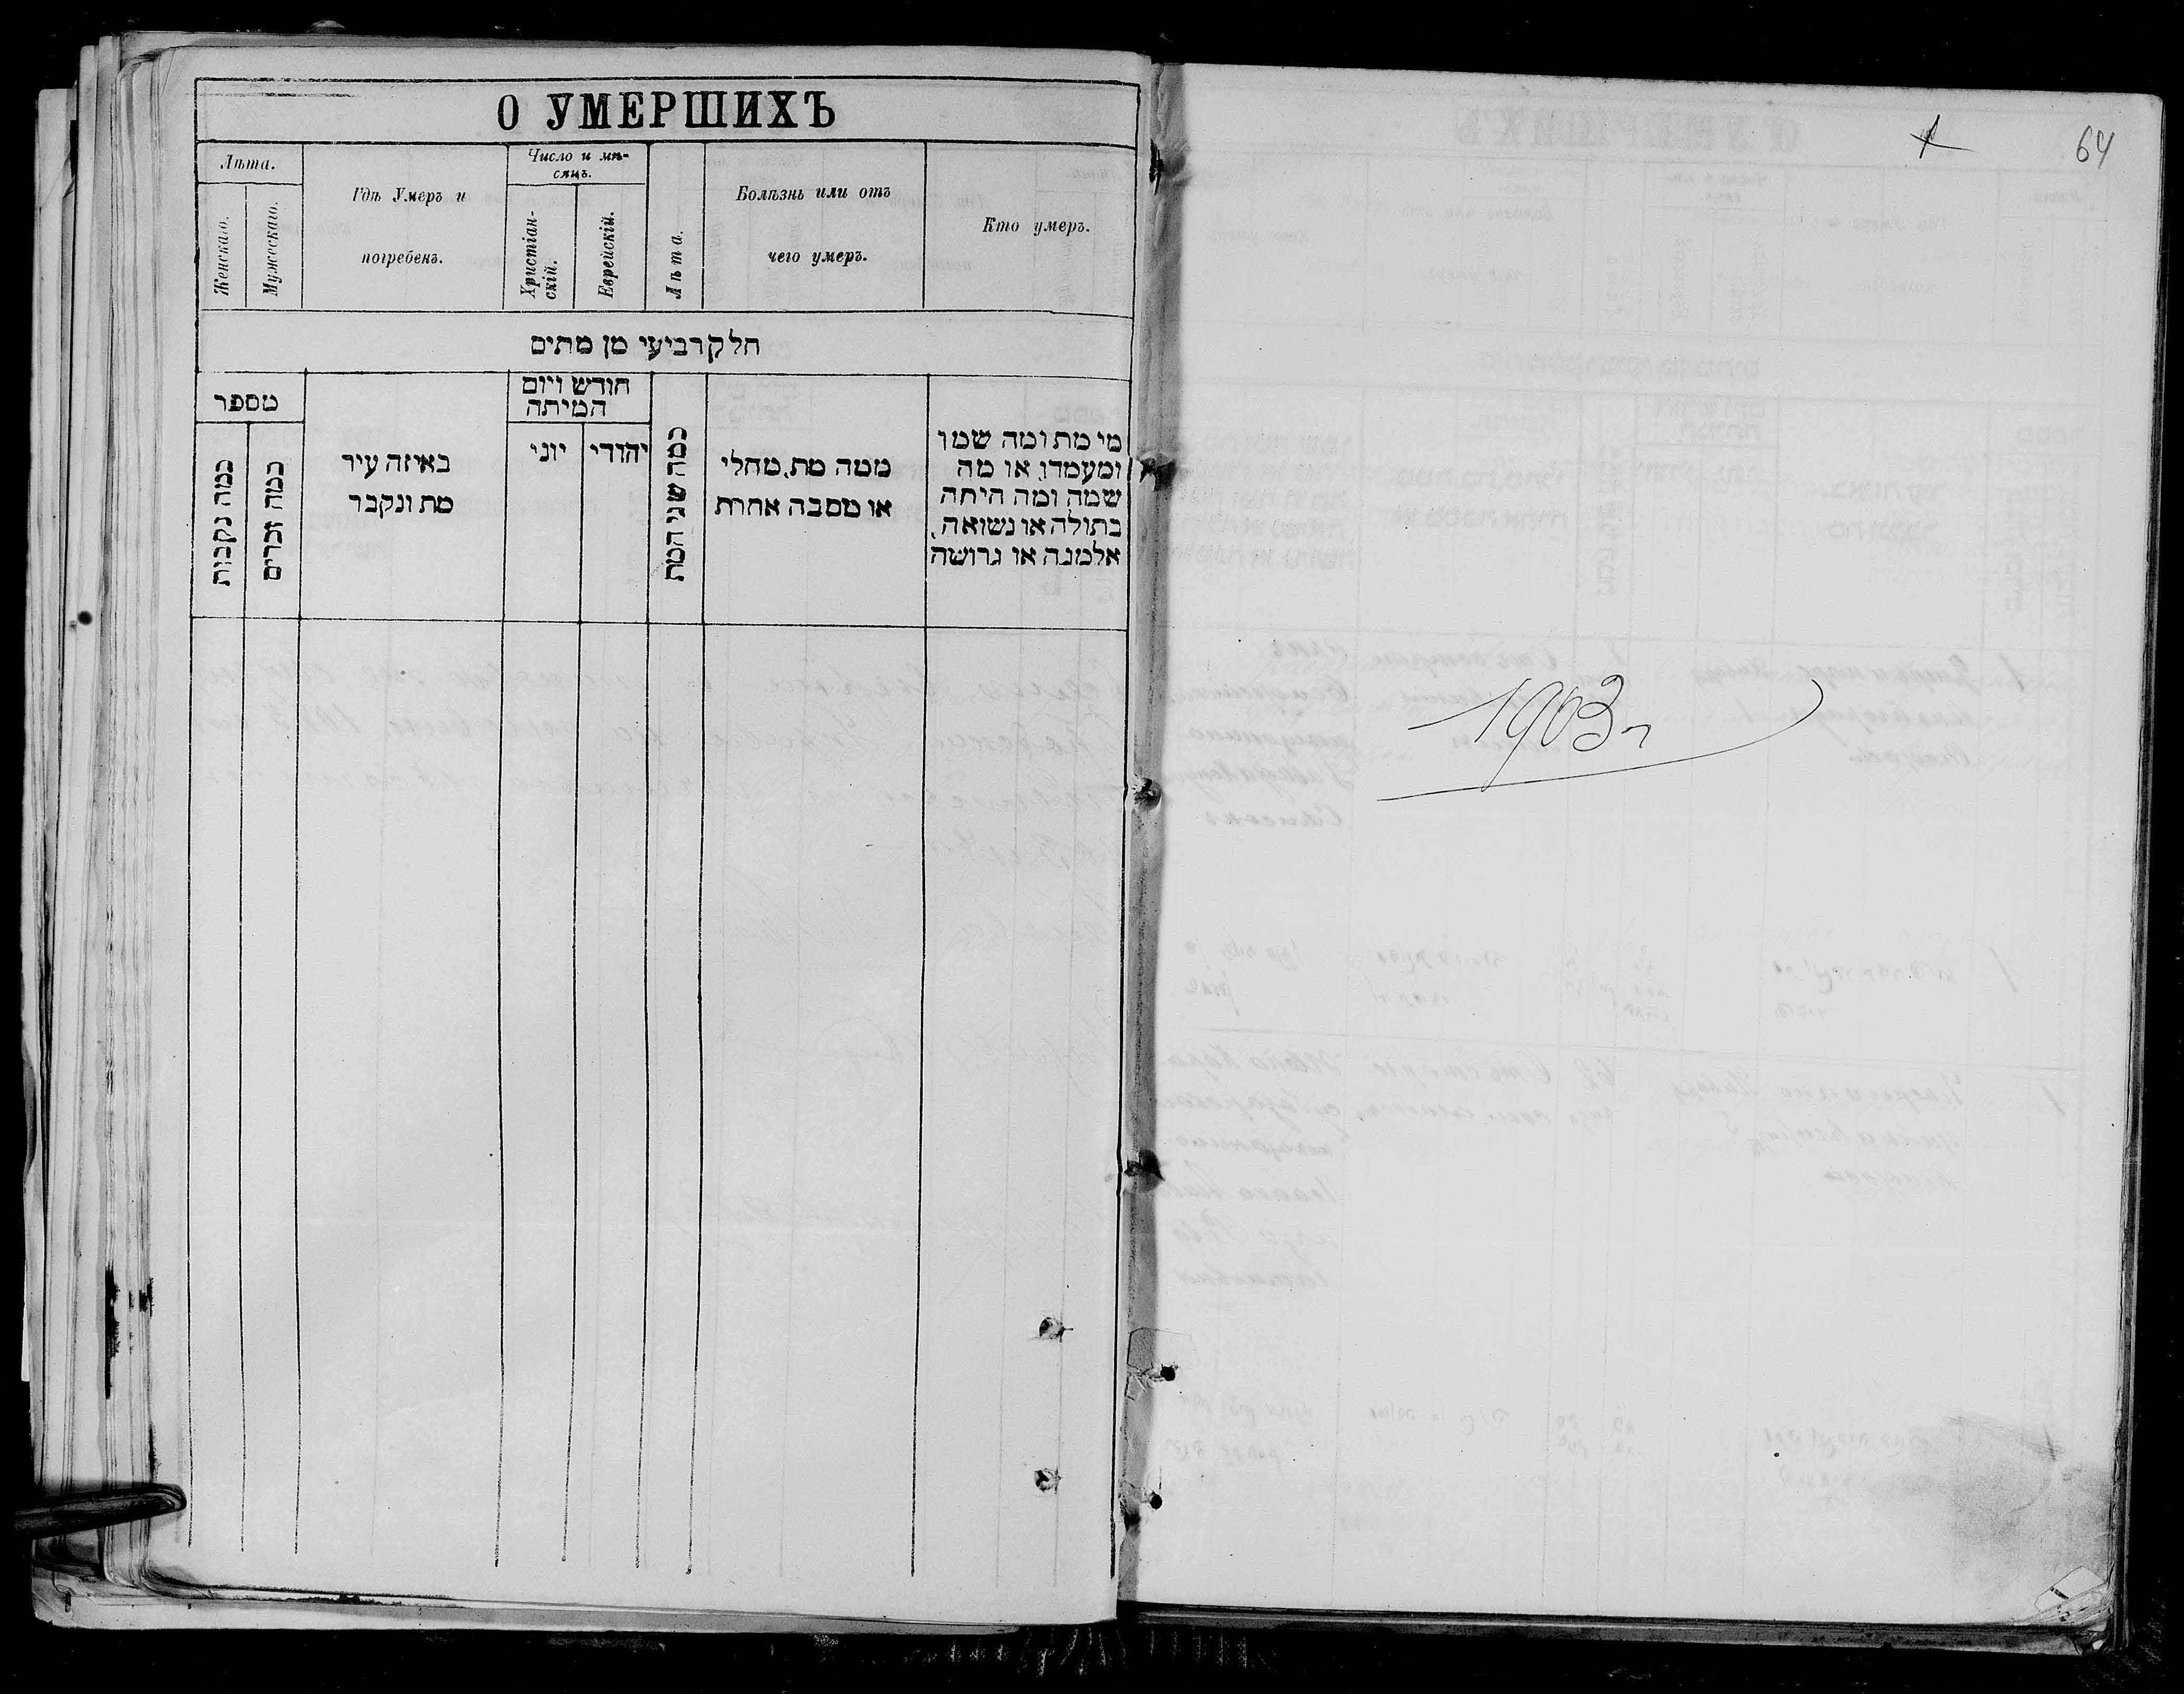 О УМЕРШИХЪ
Лѣта.
Женскаго.
Мужескаго.
Гдѣ Умеръ и
погребенъ.
Число и мѣ-
сяцъ.
Христіан-
скій.
Еврейскій.
Лѣта.
Болѣзнь или отъ
чего умеръ.
Кто умеръ.
חלק רביעי מן מתים
מספר
כמה נקבות
כמה זכרים
באיזה עיר
מת ונקבר
חודש ויום
המיתה
יוני
יהודי
כמה שני המת
ממה מת, מחלי
או מסבה אחרת
מי מת ומה שמו
ומעמדו, או מה
שמה ומה היתה
בתולה או נשואה,
אלמנה או גרושה
1
64
1903 г